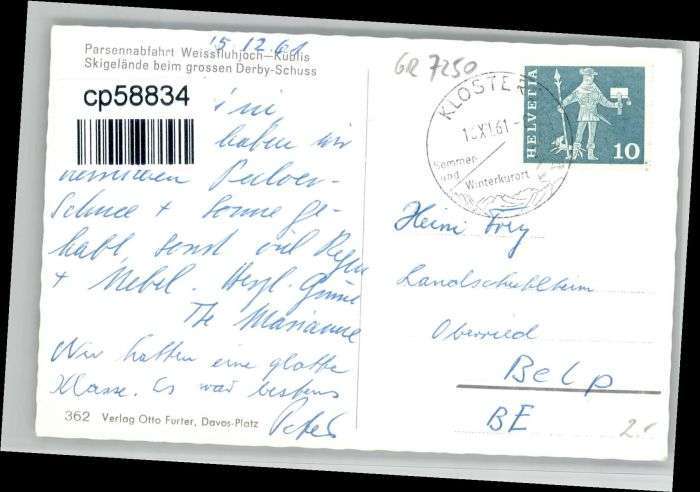 Parsennabfahrt Weissfluhjoch—Küblis
Skigelände beim grossen Derby-Schuss
15.12.61
cp58834
haben wir
Pulver-
Schnee + Sonne ge-
habt, sonst viel Regen
+ Nebel. Herzl. Grüsse
Ihr Marianne
Wir hatten eine glatte
Klasse. Es war bestens
Peter
362 Verlag Otto Furter, Davos-Platz
GR 7250
KLOSTERS
XI.61
Sommer
und Winterkurort
HELVETIA
10
Heini Frey
Landschulheim
Oberried
Belp
BE
2.-